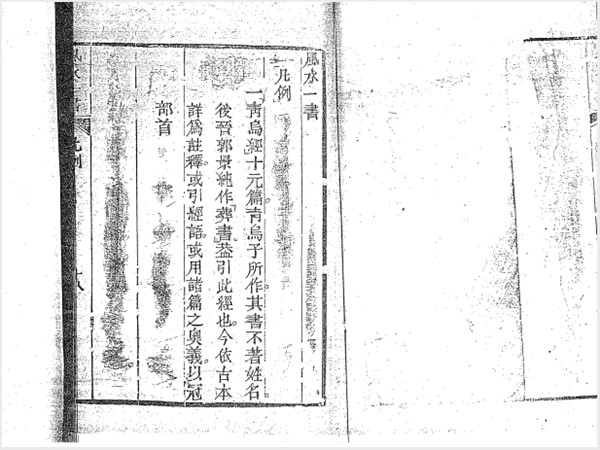 風水一書
凡例
一青烏經十元篇青烏子所作其書不著姓名
後晉郭景純作葬書葢引此經也今依古本
詳為註釋或引經語或用諸篇之奥義以冠
部首